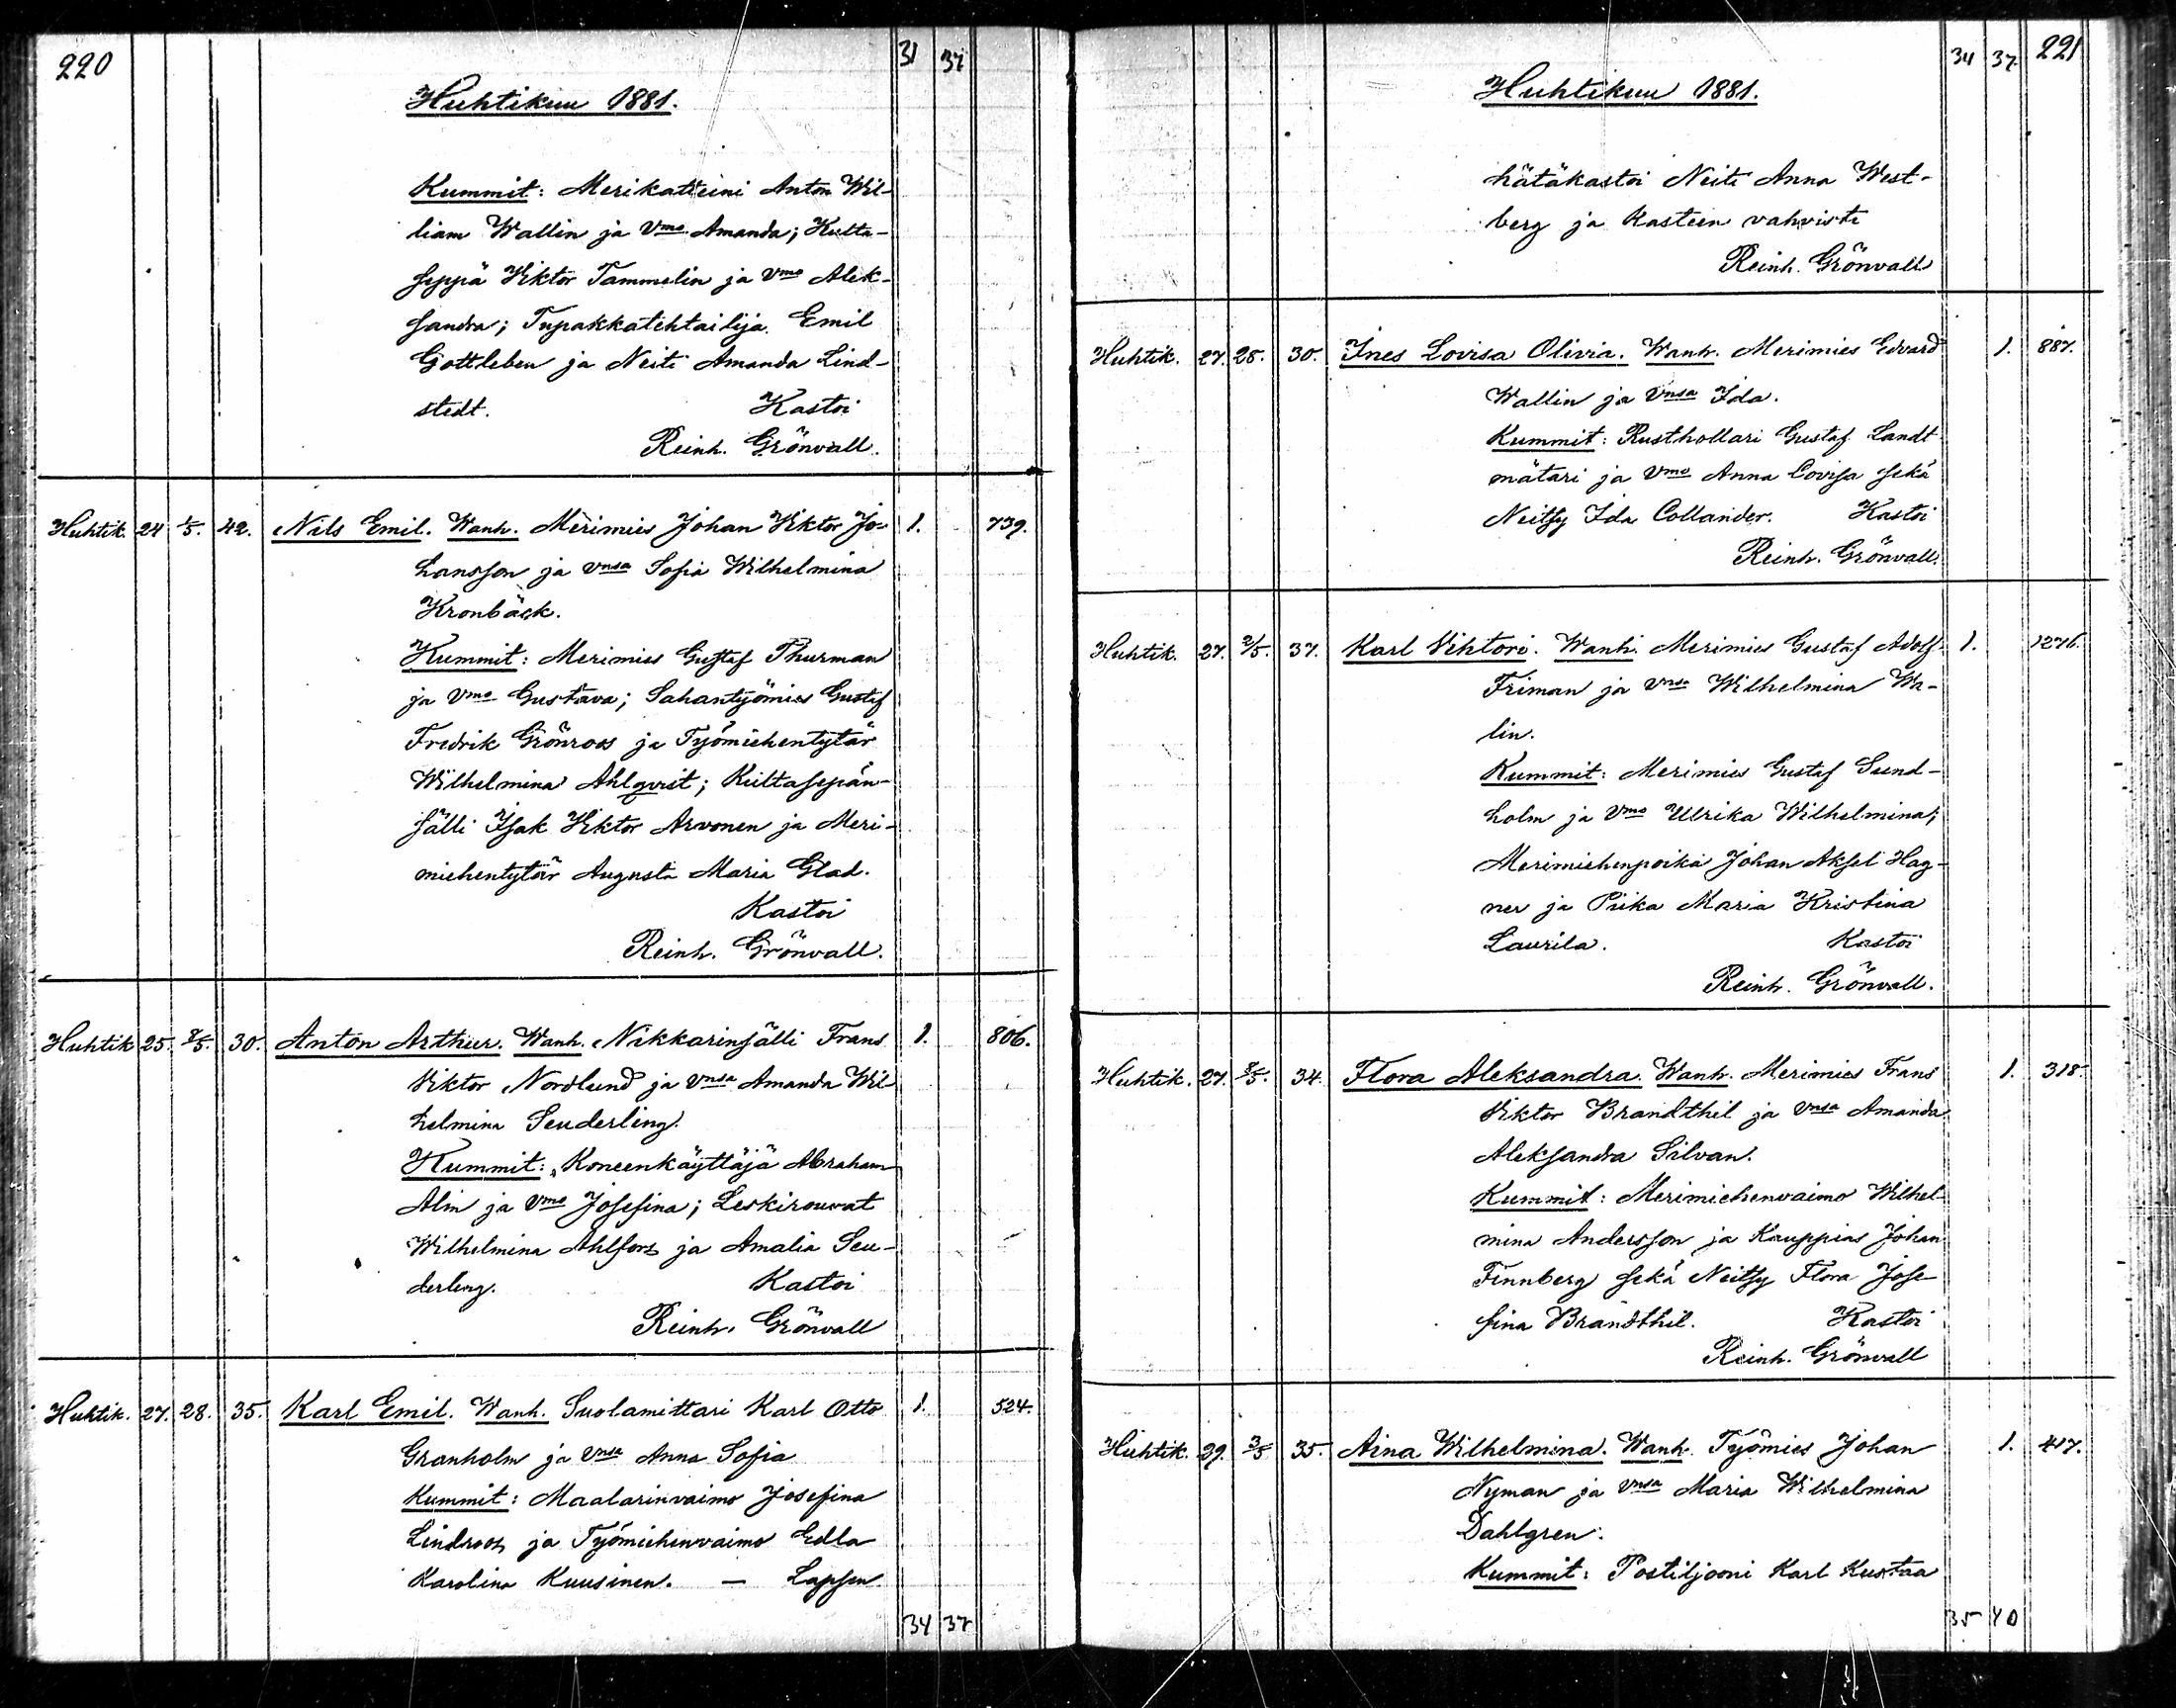 220
31 37
Huhtikuu 1881.
Kummit: Merikatteini Anton Wil-
liam Wallin ja Vmo Amanda; Kulta-
seppä Viktor Tammelin ja Vmo Alek-
sandra; Tupakkatehtailija Emil
Gottleben ja Neiti Amanda Lind-
stedt. Kastoi
Reinh. Grönvall.
Huhtik. 24 1/5. 42. Nils Emil. Wanh. Merimies Johan Viktor Jo- 1. 739.
hansson ja vnsa Sofia Wilhelmina
Kronbäck.
Kummit: Merimies Gustaf Thurman
ja Vmo Gustava; Sahantyömies Gustaf
Fredrik Grönroos ja Työmiehentytär
Wilhelmina Ahlqvist; Kultasepän-
sälli Isak Viktor Arvonen ja Meri-
miehentytär Augusta Maria Glad.
Kastoi
Reinh. Grönvall.
Huhtik 25. 8/5. 30. Anton Arthur. Wanh. Nikkarinsälli Frans 1. 806.
Viktor Nordlund ja vnsa Amanda Wil-
helmina Seuderling.
Kummit: Koneenkäyttäjä Abraham
Alm ja Vmo Josefina; Leskirouvat
Wilhelmina Ahlfors ja Amalia Seu-
derling. Kastoi
Reinh. Grönvall
Huhtik. 27. 28. 35. Karl Emil. Wanh. Suolamittari Karl Otto 1. 524.
Granholm ja vnsa Anna Sofia
Kummit: Maalarinvaimo Josefina
Lindroos ja Työmiehenvaimo Edla
Karolina Kuusinen. — Lapsen
34 37
34 37 221
Huhtikuu 1881.
hätäkastoi Neiti Anna West-
berg ja kasteen vahvisti
Reinh. Grönvall
Huhtik. 27. 28. 30. Ines Lovisa Olivia. Wanh. Merimies Edvard 1. 887.
Wallin ja vnsa Ida.
Kummit: Rusthollari Gustaf Landt
mätari ja Vmo Anna Lovisa sekä
Neitsy Ida Collander. Kastoi
Reinh. Grönvall.
Huhtik. 27. 2/5. 37. Karl Vihtori. Wanh. Merimies Gustaf Adolf 1. 1276.
Friman ja vnsa Wilhelmina Wa-
lin.
Kummit: Merimies Gustaf Sund-
holm ja Vmo Ulrika Wilhelmina;
Merimiehenpoika Johan Aksel Hag-
ner ja Piika Maria Kristina
Laurila. Kastoi
Reinh. Grönvall.
Huhtik. 27. 8/5. 34. Flora Aleksandra. Wanh. Merimies Frans 1. 318.
Viktor Brandthil ja vnsa Amanda
Aleksandra Silvan.
Kummit: Merimiehenvaimo Wilhel-
mina Andersson ja Kauppias Johan
Finnberg sekä Neitsy Flora Jose-
fina Brandthil. Kastoi
Reinh. Grönvall
Huhtik. 29. 3/5 35. Aina Wilhelmina. Wanh. Työmies Johan 1. 417.
Nyman ja vnsa Maria Wilhelmina
Dahlgren.
Kummit: Postiljooni Karl Kustaa
35 40